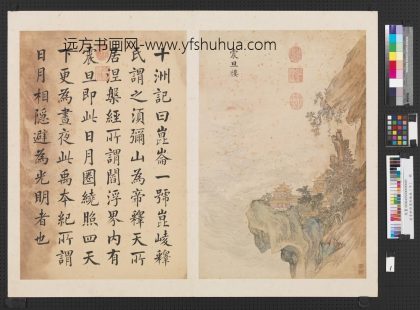 远方书画网-www.yfshuhua.com
震旦樓
十洲記曰崑崙一號崑崚釋
氏謂之須彌山為帝釋天所
居涅槃經所謂閻浮界內有
震旦即此日月圍繞照四天
下更為晝夜此禹本紀所謂
日月相隱避為光明者也